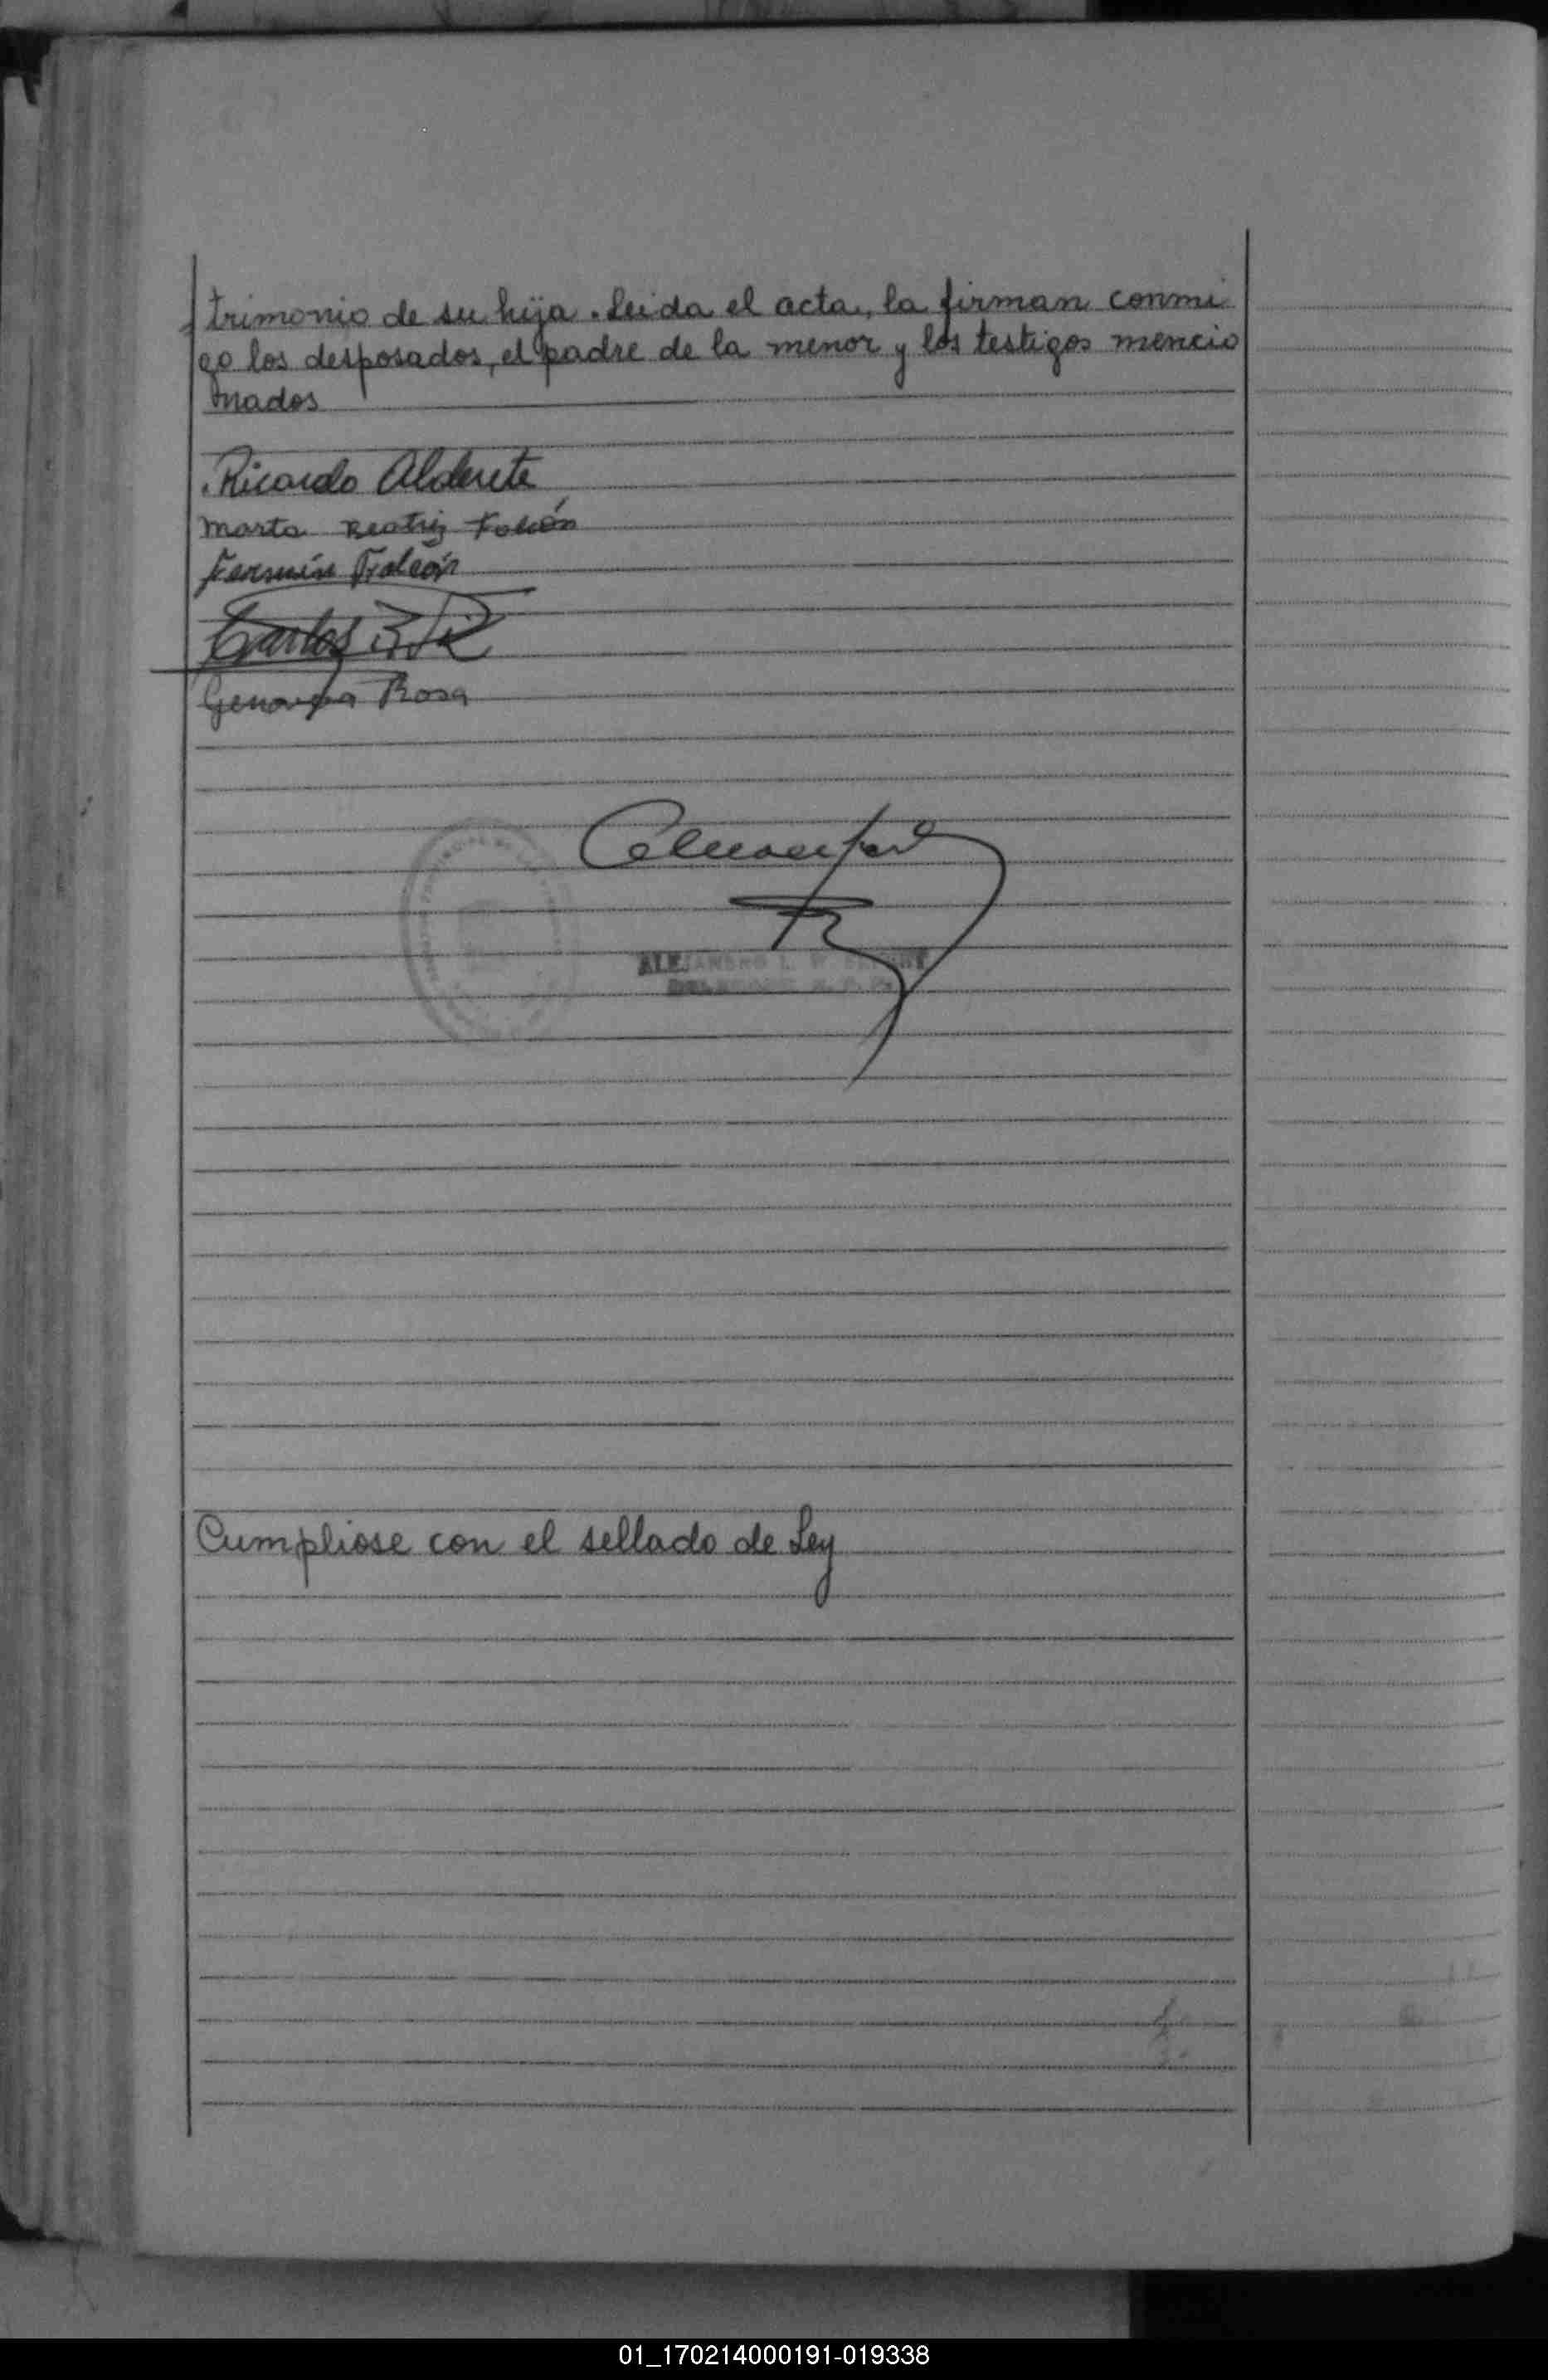 trimonio de su hija. Leida el acta, la firman conmi
go los desposados, el padre de la menor y los testigos mencio
nados
Ricardo Alderete
Marta Beatriz Falcón
Fermín Falcón
Carlos
Rosa
ALEJANDRO L.
Cumpliose con el sellado de Ley
01_170214000191-019338